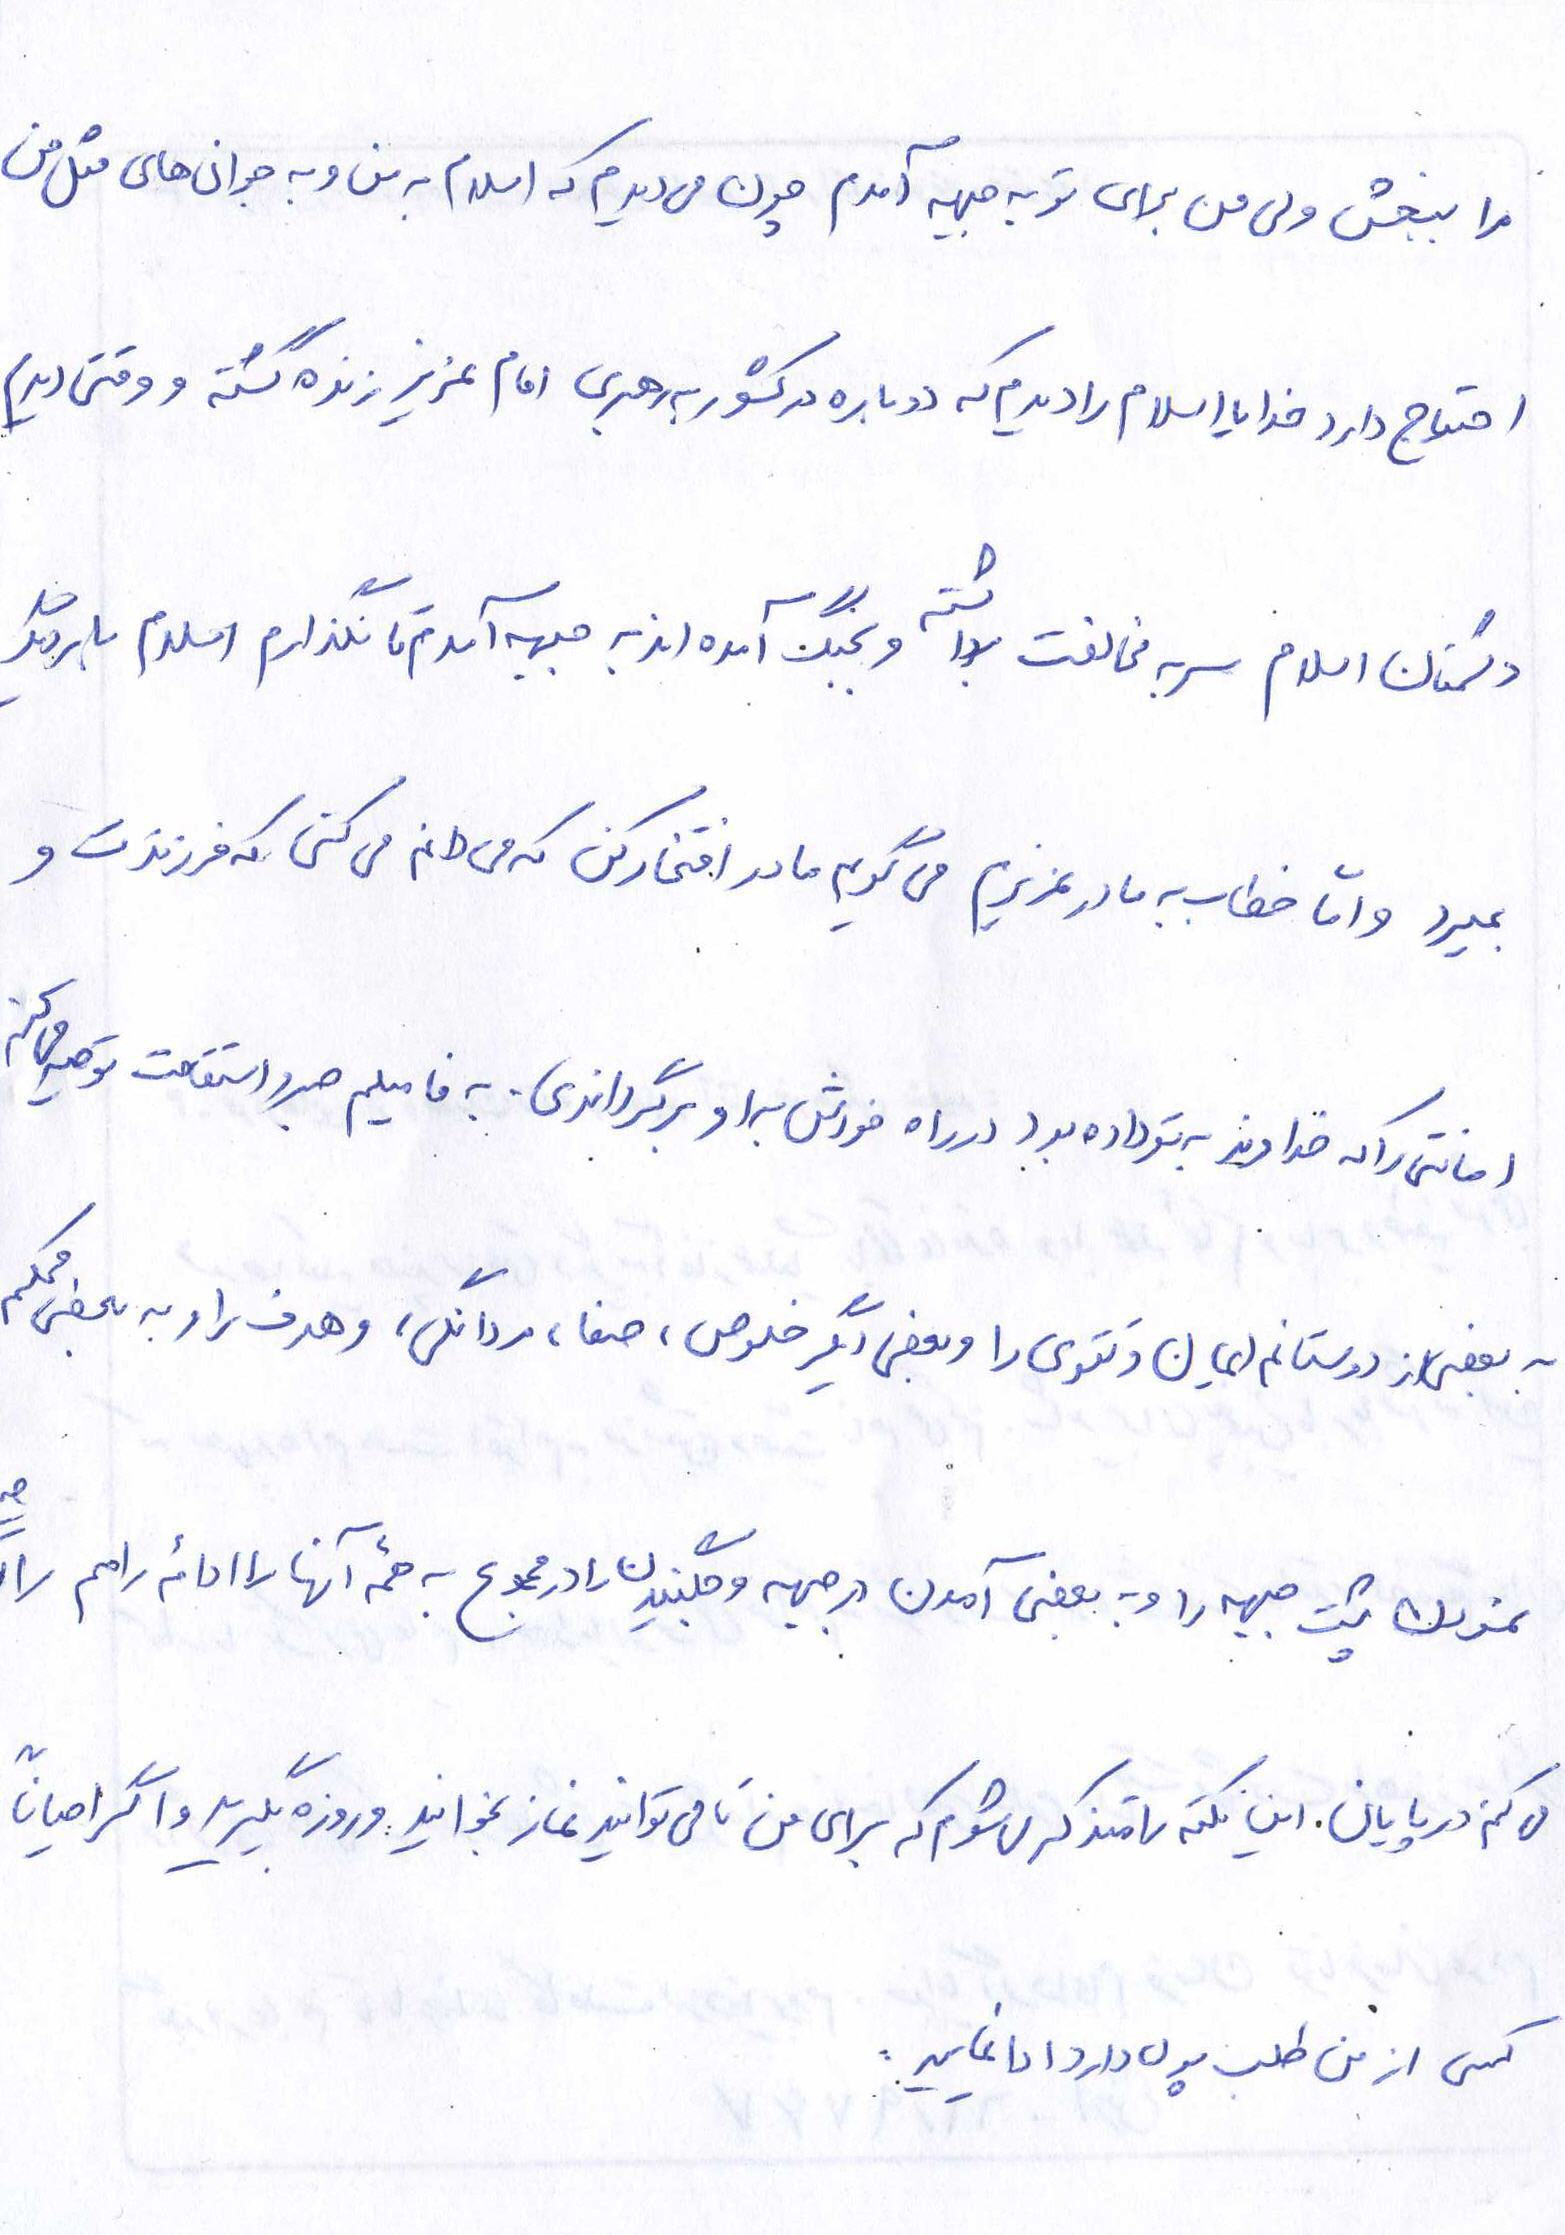 مرا ببخش ولی من برای تو به جبهه آمدم چون می‌دیدم که اسلام به من و به جوانی‌های مثل من
احتیاج دارد خدایا اسلام را دیدم که دوباره در کشور به رهبری امام عزیز زنده گشته و وقتی دیدم
دشمنان اسلام سر به مخالفت برداشته و بجنگ آمده‌اند به جبهه آمدم تا نگذارم اسلام بار دیگر
بمیرد و امّا خطاب به مادر عزیزم می‌گویم مادر افتخار کن که می‌دانم می‌کنی که فرزندت و
امانتی را که خداوند به تو داده بود در راه خودش به او برگرداندی. به فامیلم صبر و استقامت توصیه می‌کنم
به بعضی از دوستانم ایمان و تقوی را و بعضی دیگر خلوص، صفا، مردانگی، و هدف را و به بعضی محکم
نمودن پشت جبهه را و به بعضی آمدن در جبهه و جنگیدن را در مجموع به همهٔ آنها را ادامهٔ راهم را توصیه
می‌کنم در پایان. این نکته را متذکر می‌شوم که برای من تا می‌توانید نماز بخوانید. و روزه بگیرید و اگر احیاناً
کسی از من طلب پول دارد ادا نمایید.